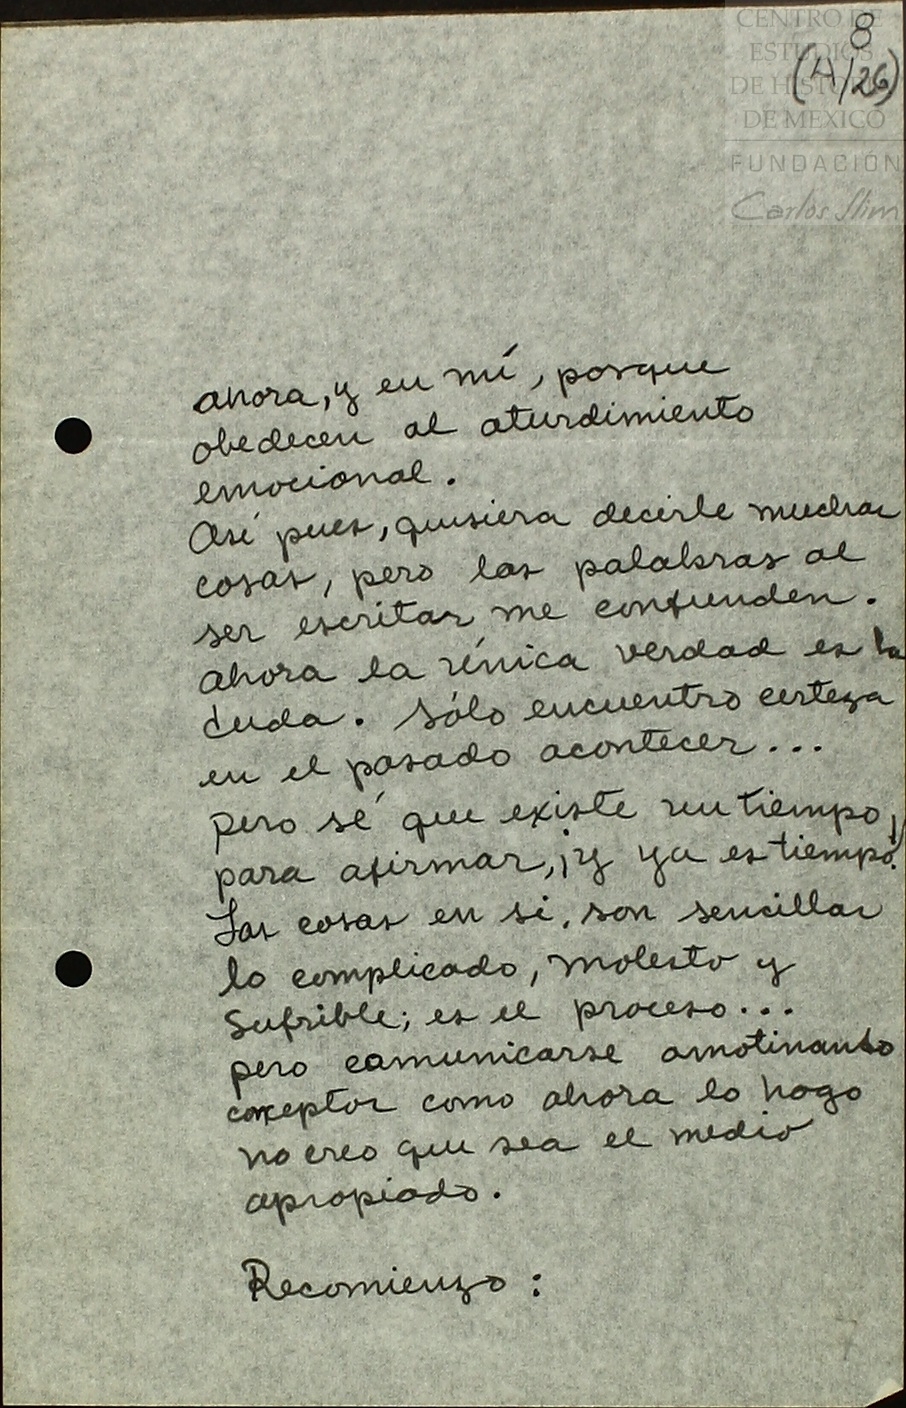 CENTRO DE
ESTUDIOS
DE HISTORIA
DE MEXICO
FUNDACIÓN
Carlos Slim
8
(A/26)
ahora, y en mí, porque
obedecen al aturdimiento
emocional.
Así pues, quisiera decirle muchas
cosas, pero las palabras al
ser escritas me confunden.
ahora la única verdad es la
duda. Sólo encuentro certeza
en el pasado acontecer...
pero sé que existe un tiempo
para afirmar, ¡y ya es tiempo!
Las cosas en sí, son sencillas
lo complicado, molesto y
sufrible; es el proceso...
pero comunicarse amotinando
conceptos como ahora lo hago
no creo que sea el medio
apropiado.
Recomienzo:
7